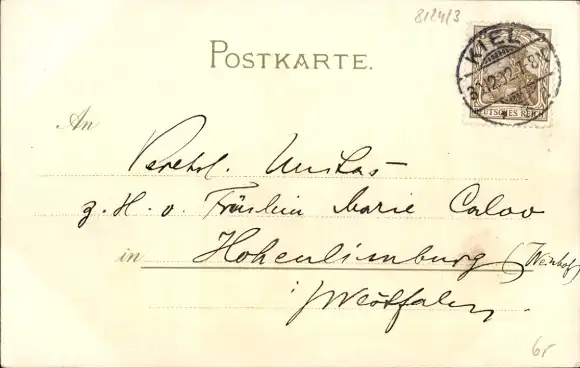 8/24/3
POSTKARTE.
KIEL
30.12.02.7-8 N
DEUTSCHES REICH
An
Verehrl. Unitas
z. H. v. Fräulein Marie Calov
in Hohenlimburg (Weinhof)
i/Westfalen